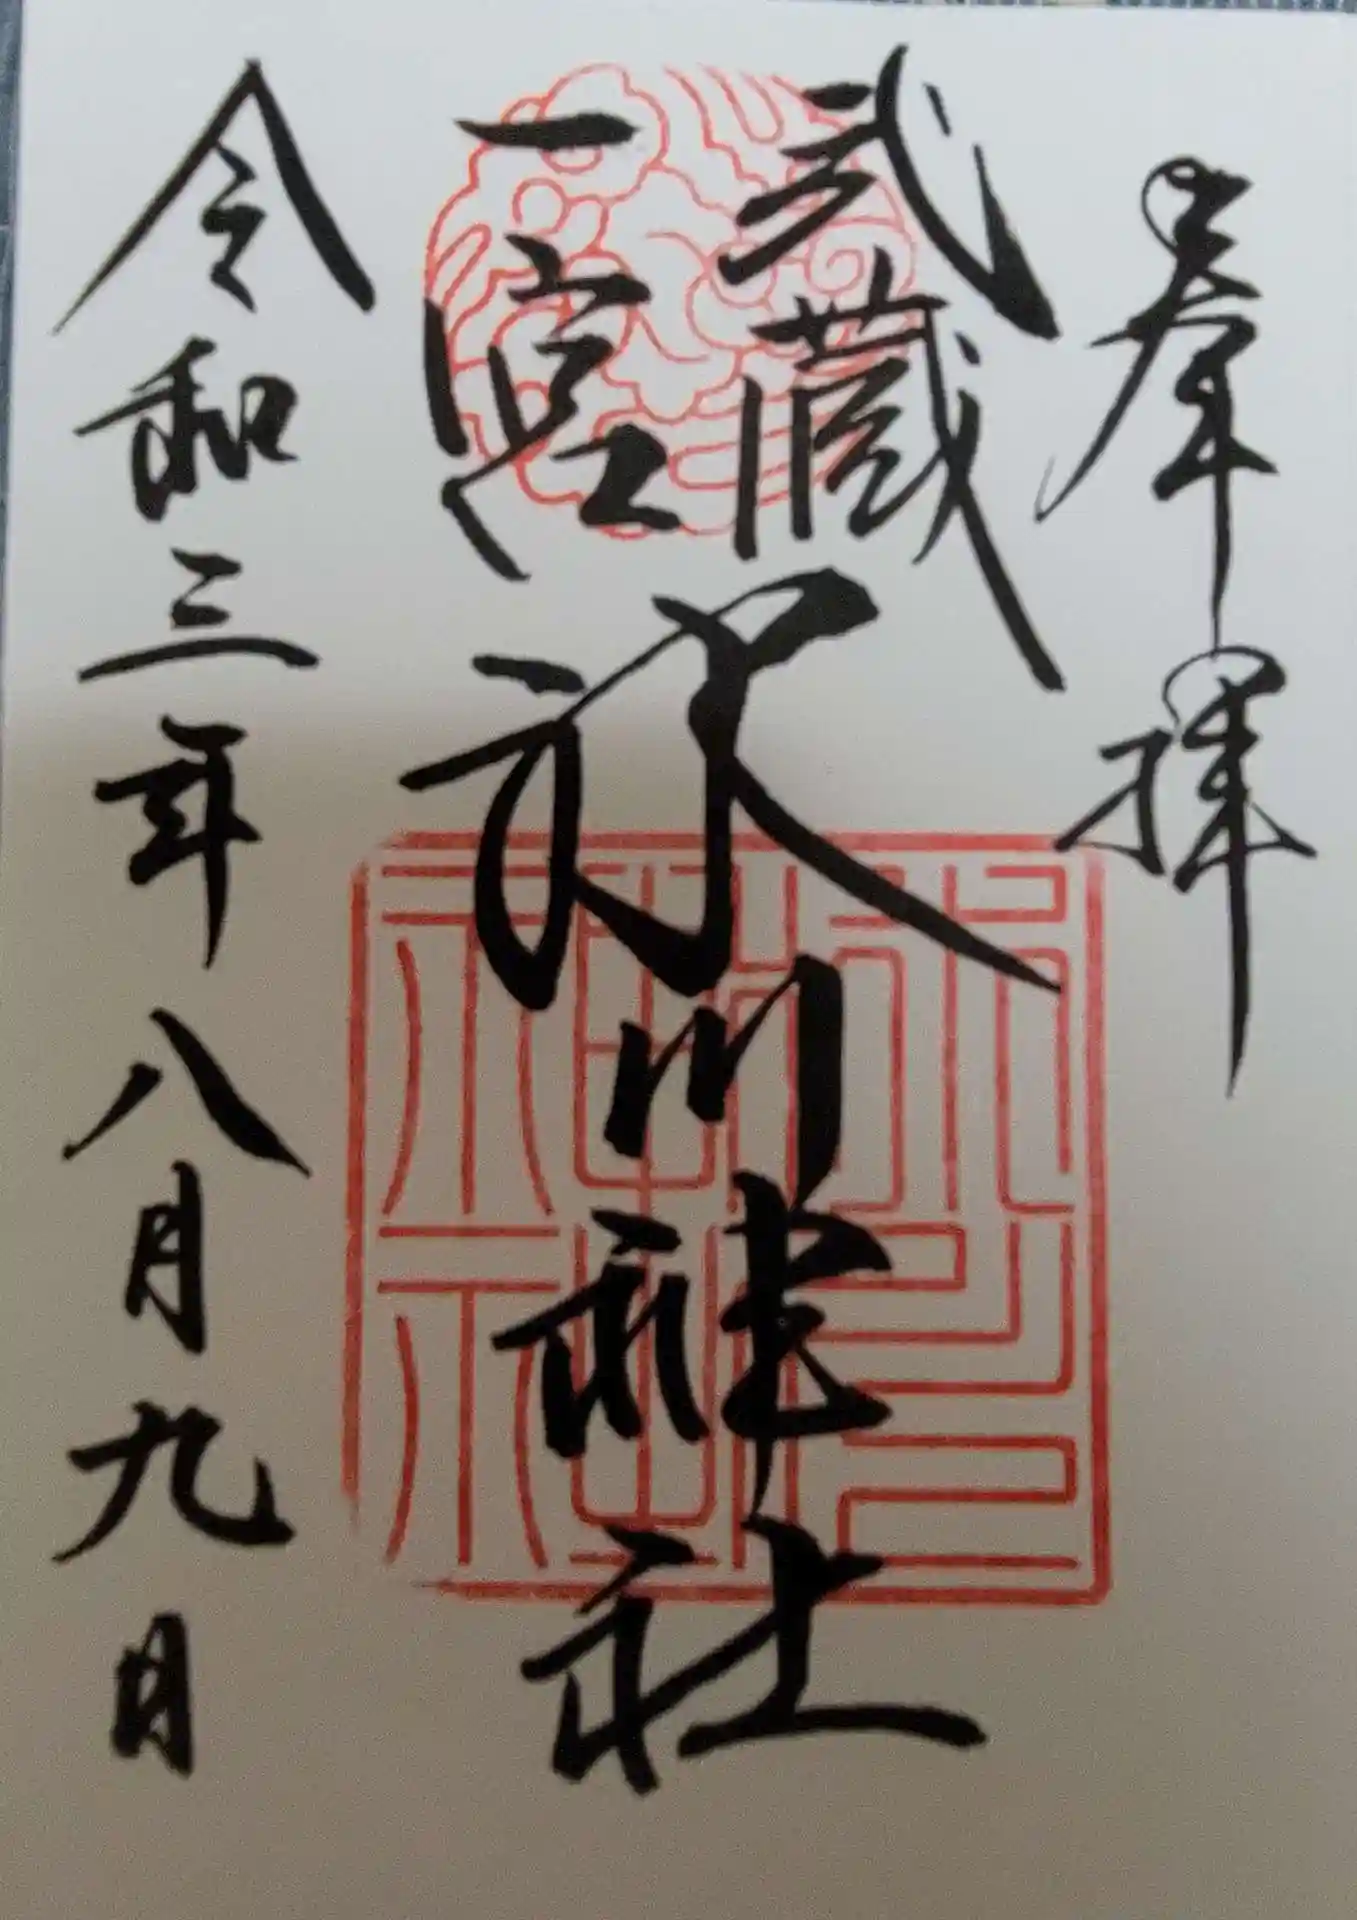 奉拝
武蔵
一宮
氷川神社
令和三年八月九日
氷川神社